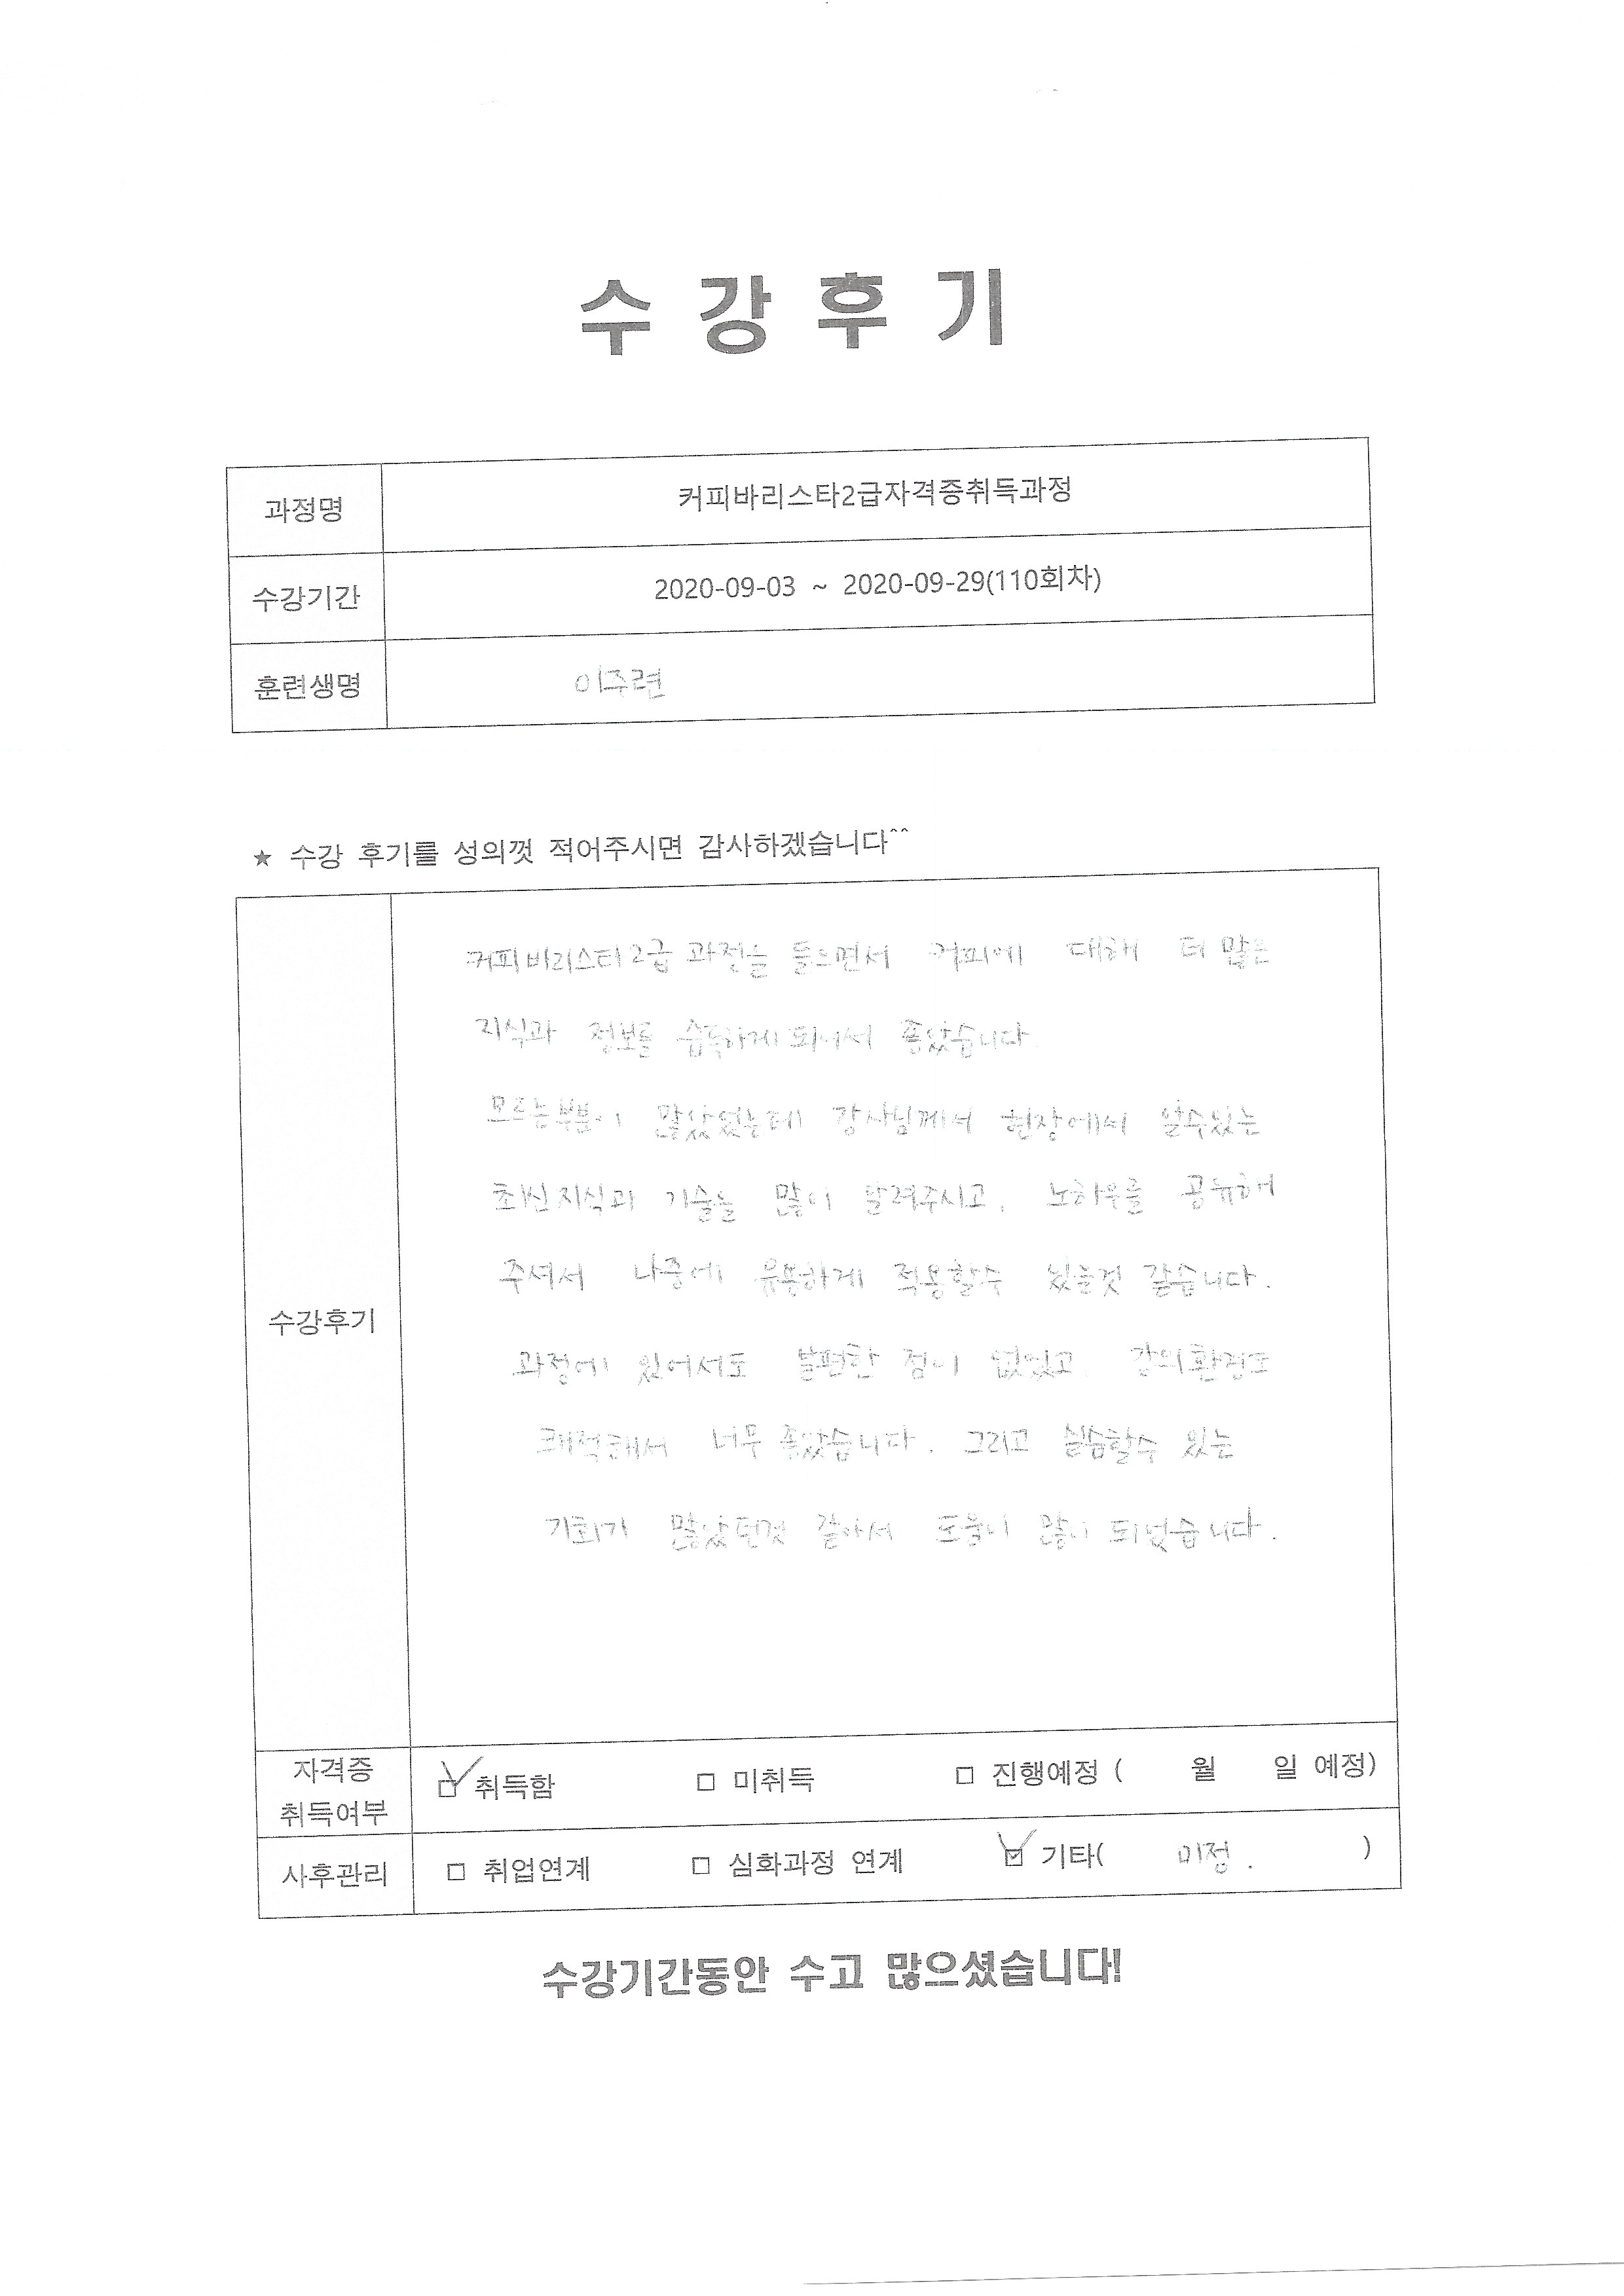 수 강 후 기
과정명 커피바리스타2급자격증취득과정
수강기간 2020-09-03 ~ 2020-09-29(110회차)
훈련생명 이주련
★ 수강 후기를 성의껏 적어주시면 감사하겠습니다^^
커피바리스타2급 과정을 들으면서 커피에 대해 더 많은
지식과 정보를 습득하게 되어서 좋았습니다.
모르는부분이 많았었는데 강사님께서 현장에서 알수있는
최신지식과 기술을 많이 알려주시고, 노하우를 공유해
주셔서 나중에 유용하게 적용할수 있을것 같습니다.
수강후기
과정에 있어서도 불편한 점이 없었고, 강의환경도
쾌적해서 너무 좋았습니다. 그리고 실습할수 있는
기회가 많았던것 같아서 도움이 많이 되었습니다.
자격증
취득여부
□ 취득함 □ 미취득 □ 진행예정 ( 월 일 예정)
사후관리 □ 취업연계 □ 심화과정 연계 □ 기타( 미정. )
수강기간동안 수고 많으셨습니다!